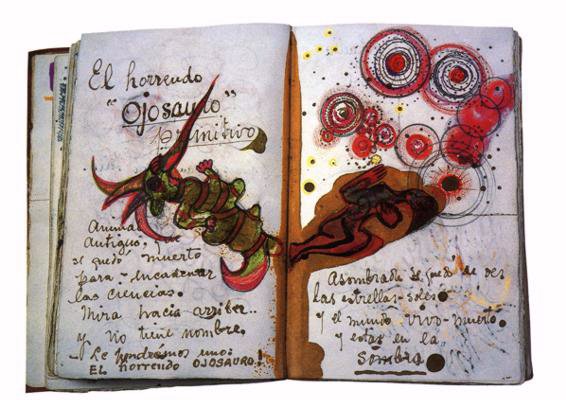 El horrendo
"OJOSAURO"
primitivo
Animal
antiguo,
se quedó muerto
para encadenar
las ciencias.
Mira hacia arriba..
y no tiene nombre.
– Le pondremos uno:
EL horrendo OJOSAURO!
Asombrada se quedó de ver
las estrellas-soles
y el mundo vivo-muerto
y estar en la
sombra